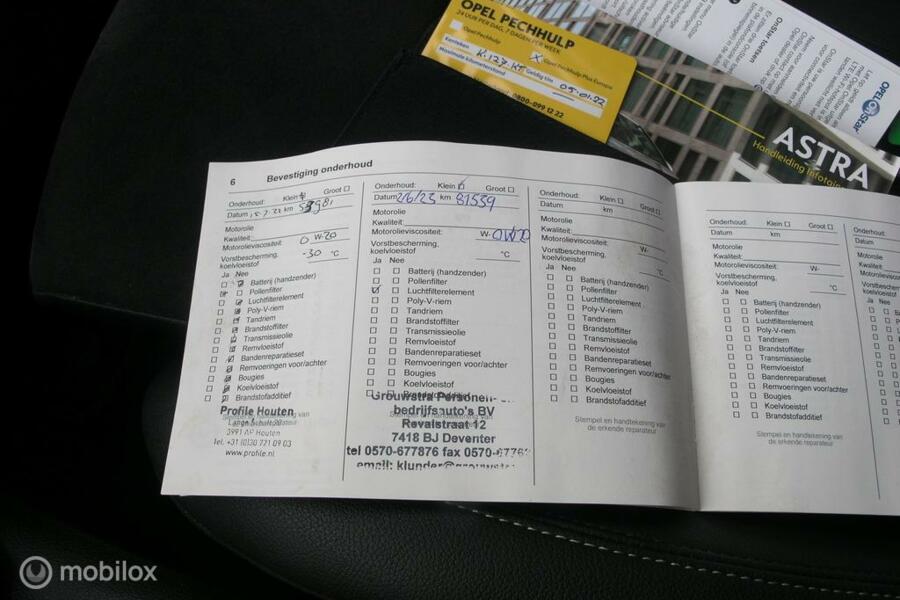 OPEL PECHHULP
24 UUR PER DAG, 7 DAGEN PER WEEK
Opel Pechhulp
X Opel Pechhulp Plus Europa
Kenteken K.127.KT Geldig t/m 05-01-22
Maximale kilometerstand
0800-099 12 22
OnStar toetsen
OPEL OnStar
ASTRA
Handleiding Infotain
6 Bevestiging onderhoud
Onderhoud: Klein Groot
Datum km
Motorolie
Kwaliteit:
Motorolieviscositeit: 0 W-20
Vorstbescherming, koelvloeistof -30 °C
Ja Nee
Batterij (handzender)
Pollenfilter
Luchtfilterelement
Poly-V-riem
Tandriem
Brandstoffilter
Transmissieolie
Remvloeistof
Bandenreparatieset
Remvoeringen voor/achter
Bougies
Koelvloeistof
Brandstofadditief
Profile Houten
3991 AP Houten
Tel. +31 (0)30 721 09 03
www.profile.nl
Onderhoud: Klein Groot
Datum 2/6/23 km 81559
Motorolie
Kwaliteit:
Motorolieviscositeit: W- 0W20
Vorstbescherming, koelvloeistof °C
Ja Nee
Batterij (handzender)
Pollenfilter
Luchtfilterelement
Poly-V-riem
Tandriem
Brandstoffilter
Transmissieolie
Remvloeistof
Bandenreparatieset
Remvoeringen voor/achter
Bougies
Koelvloeistof
Grouwstra Personen-
bedrijfsauto's BV
Revalstraat 12
7418 BJ Deventer
tel 0570-677876 fax 0570-6776
email: klunder@grouwst
Onderhoud: Klein Groot
Datum km
Motorolie
Kwaliteit:
Motorolieviscositeit: W-
Vorstbescherming, koelvloeistof °C
Ja Nee
Batterij (handzender)
Pollenfilter
Luchtfilterelement
Poly-V-riem
Tandriem
Brandstoffilter
Transmissieolie
Remvloeistof
Bandenreparatieset
Remvoeringen voor/achter
Bougies
Koelvloeistof
Brandstofadditief
Stempel en handtekening van
de erkende reparateur
Onderhoud: Klein Groot
Datum km
Motorolie
Kwaliteit:
Motorolieviscositeit: W-
Vorstbescherming,
koelvloeistof °C
Ja Nee
Batterij (handzender)
Pollenfilter
Luchtfilterelement
Poly-V-riem
Tandriem
Brandstoffilter
Transmissieolie
Remvloeistof
Bandenreparatieset
Remvoeringen voor/achter
Bougies
Koelvloeistof
Brandstofadditief
Stempel en handtekening van
de erkende reparateur
Onderhoud:
Datum
Motorolie
Kwaliteit:
Ja Nee
mobilox